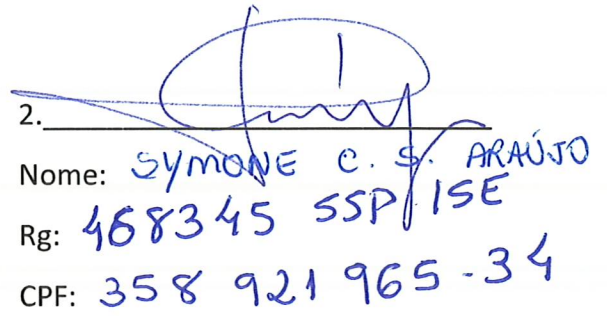 2.
Nome: SYMONE C. S. ARAÚJO
Rg: 468345 SSP/SE
CPF: 358 921 965-34